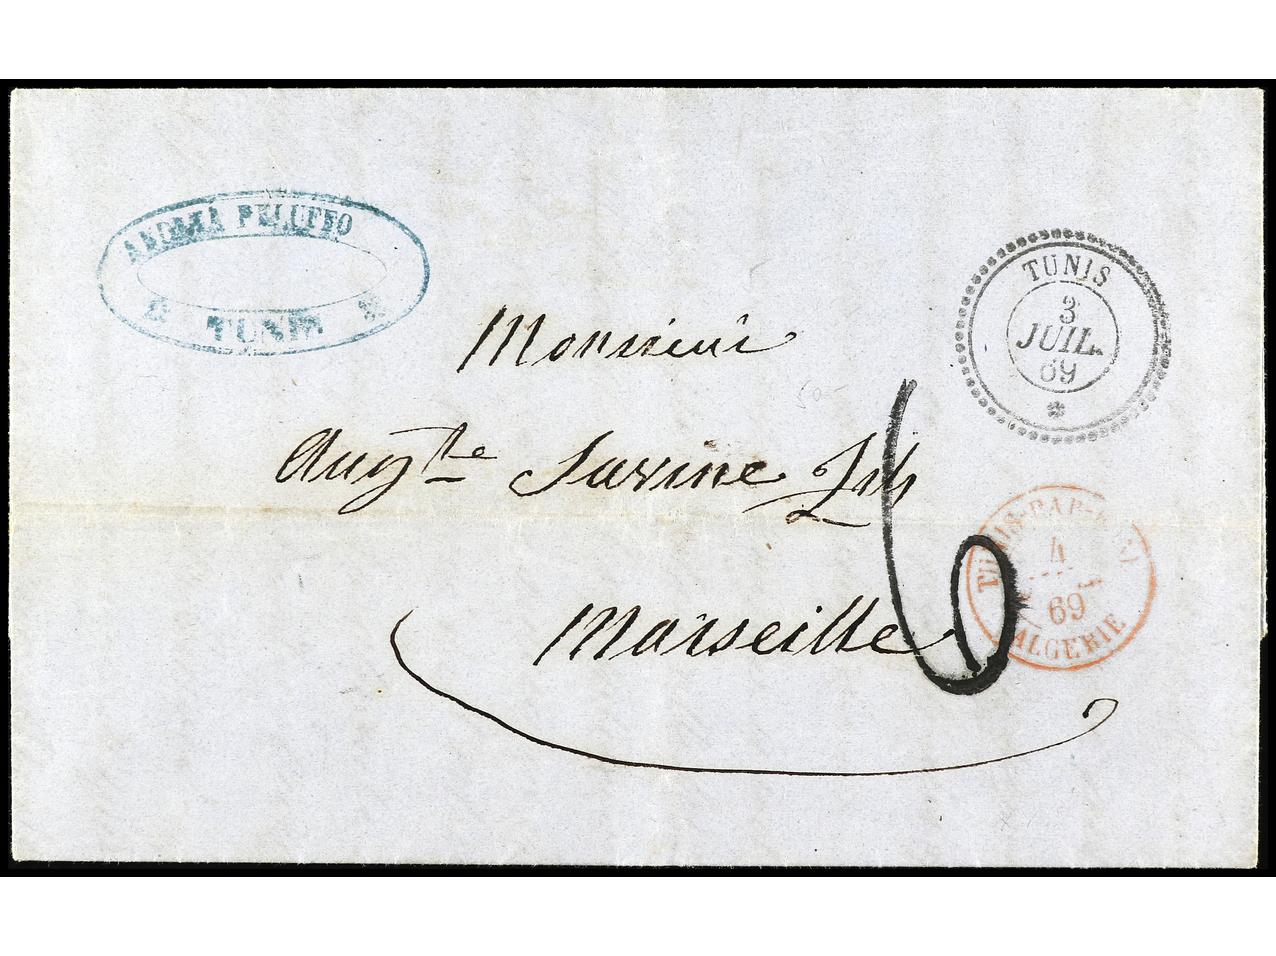 ANDREA PELUFFO
TUNIS
TUNIS
3
JUIL.
69
Monsieur
50-
Augte Savine fils
6
TUNIS-PAR-
4
69
ALGERIE
Marseille